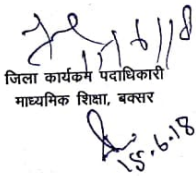 जिला कार्यक्रम पदाधिकारी
माध्यमिक शिक्षा, बक्सर
15.6.18